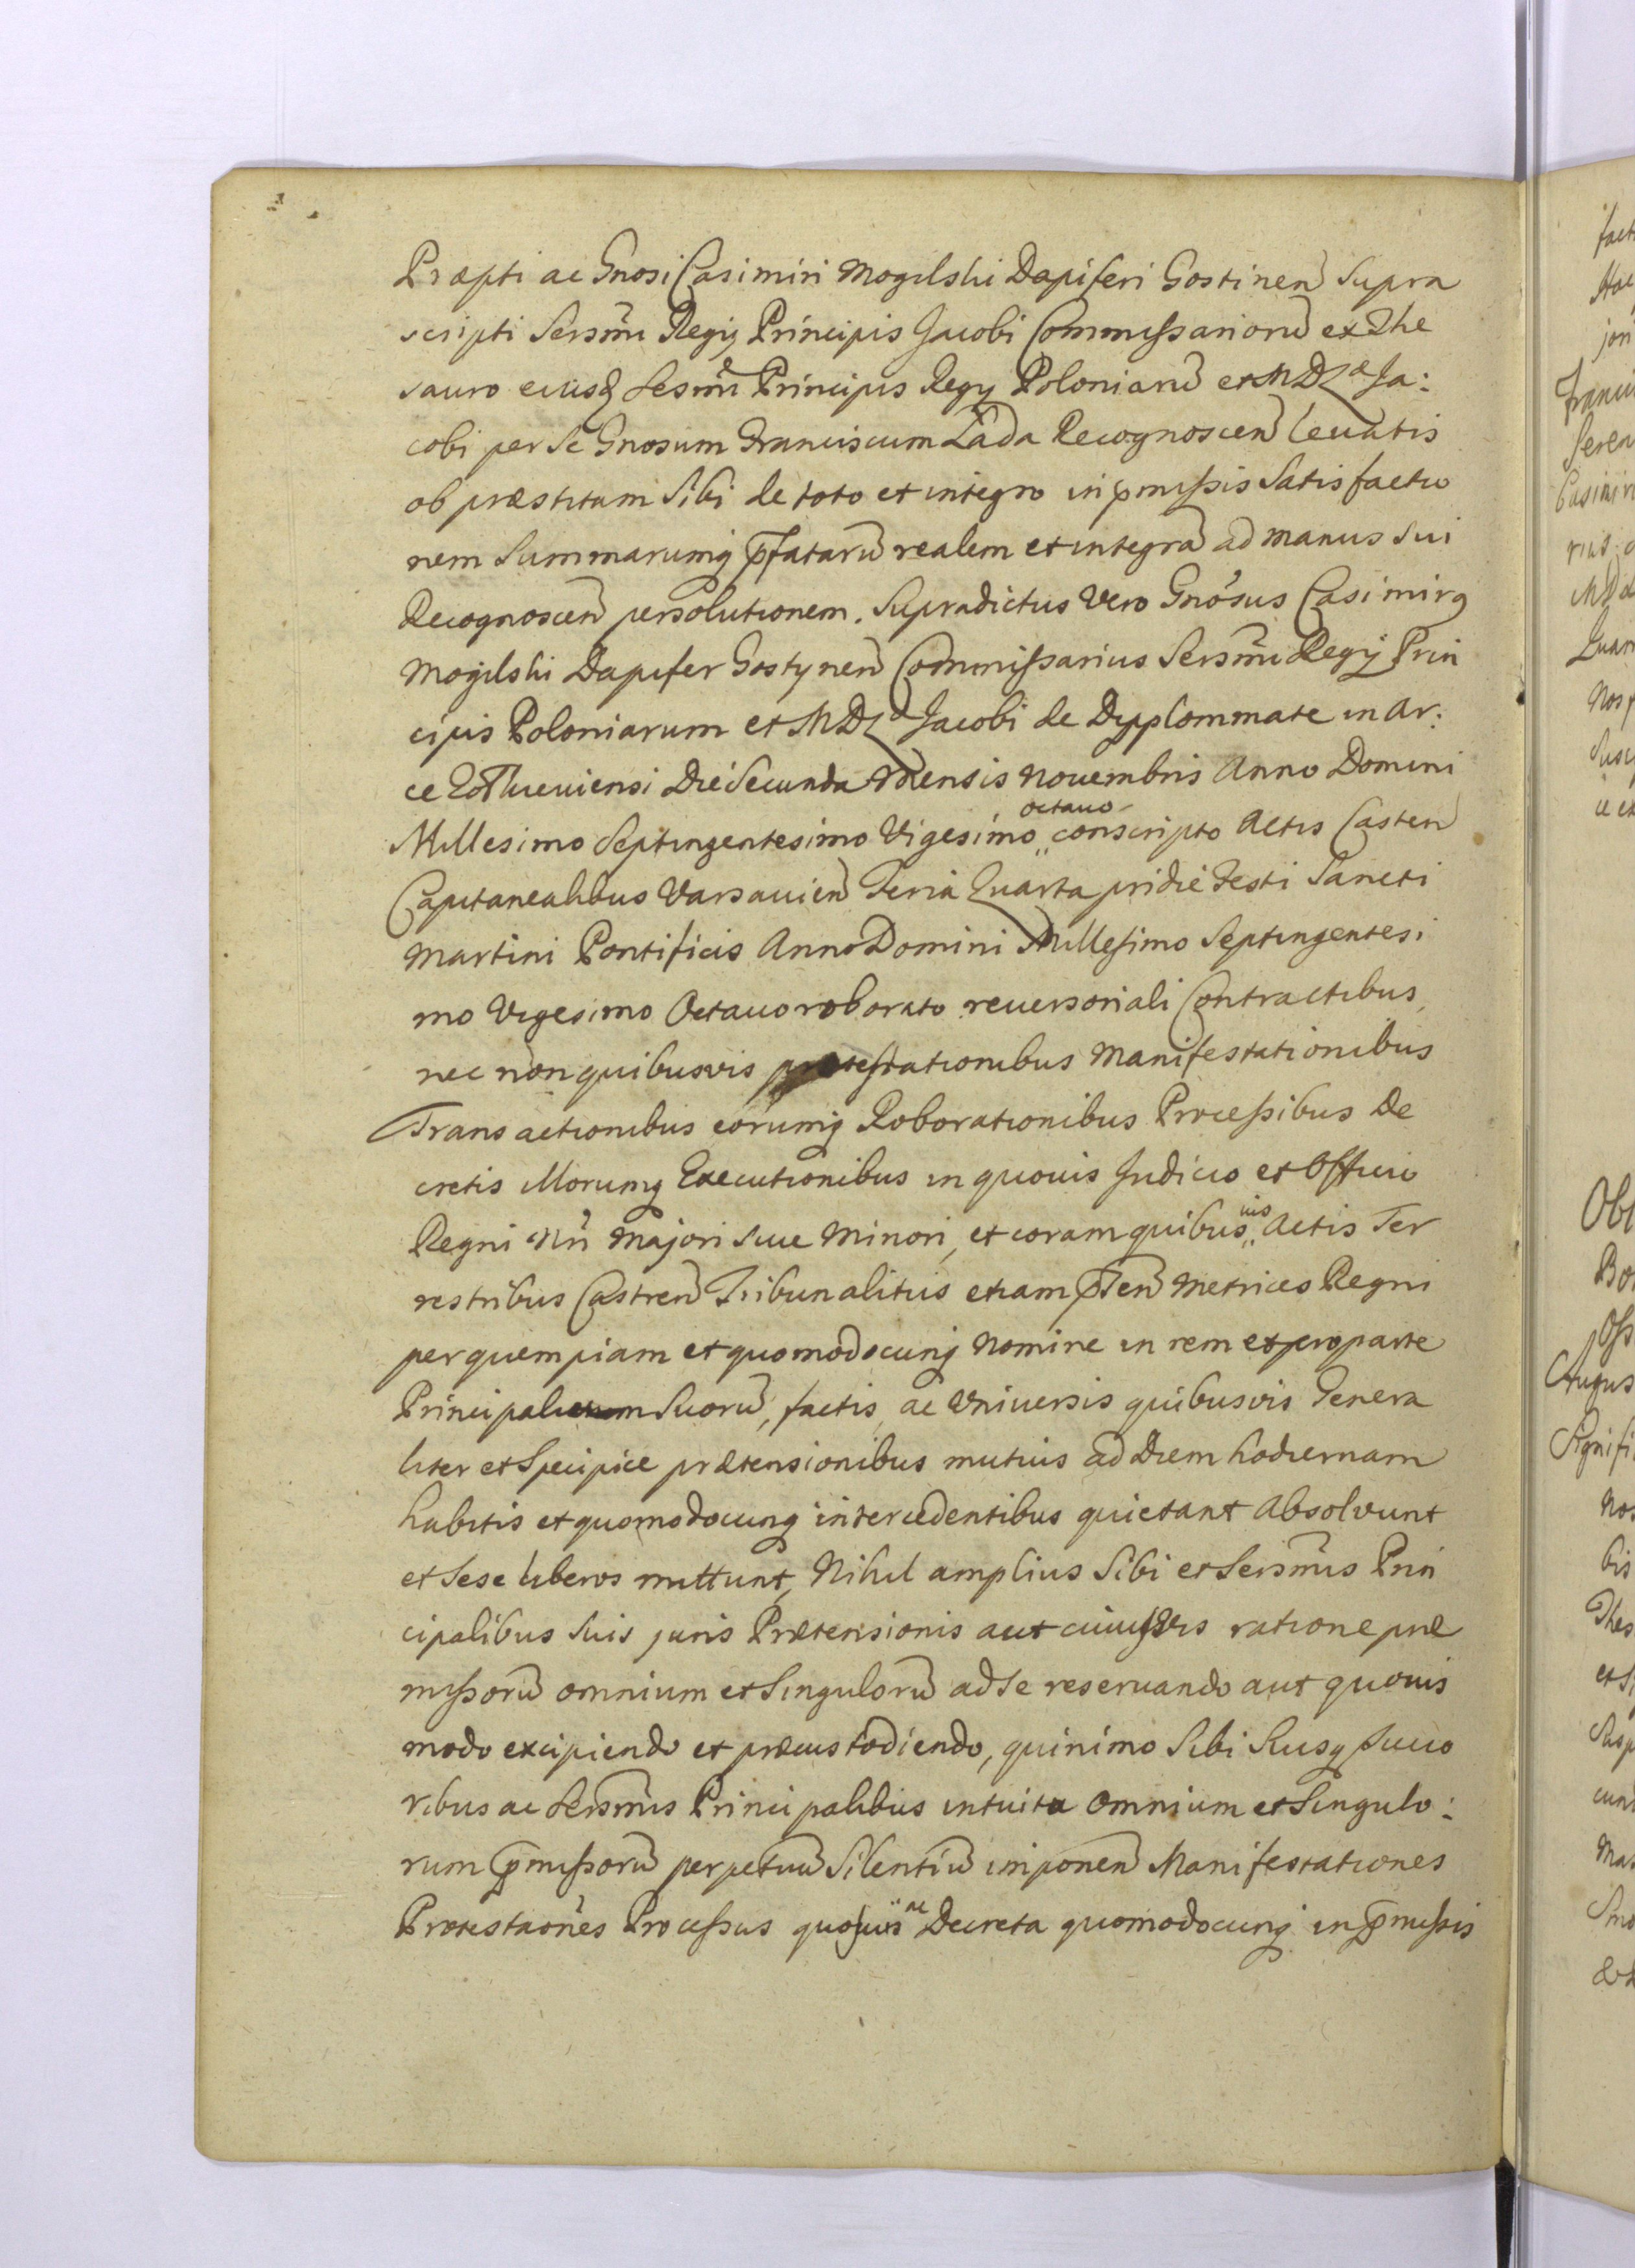 Præpti ac Gnosi Casimiri Mogilski Dapiferi Gostinen Supra
scripti Sersmi Regij Principis Jacobi Commissarioru ex The
sauro eiusq Sesmi Principis Regij Poloniaru et MDL Ja:
cobi per Se Gnosum Franciscum Łada Recognoscen leuatis
ob præstitam Sibi de toto et integro in pmissis Satisfactio
nem Summarumq pfataru realem et integra ad manus Sui
Recognoscen persolutionem. Supradictus Vero Gnosus Casimirq
Mogilski Dapifer Gostynen Commissarius Sersmi Regij Prin
cipis Poloniarum et MDL Jacobi de Dyplommate in Ar:
ce Die Secunda Mensis Nouembris Anno Domini
Millesimo Septingentesimo Vigesimo octauo conscripto Actis Casten
Capitanealibus Varsauien Feria Quarta pridie Festi Sancti
Martini Pontificis Anno Domini Millesimo Septingentesi
mo Vigesimo Octauo roborato reuersoriali Contractibus,
nec non quibusvis protestationibus Manifestationibus
Transactionibus eorumq Roborationibus Processibus De
cretis Morumq Executionibus in quouis Judicio et Officio
Regni Nri Majori siue Minori, et coram quibusuis Actis Ter
restribus Castren Tribunalitus etiam pten Metrices Regni
per quempiam et quomodocunq Nomine in rem et pro parte
Principalium Suoru, factis, ac Vniuersis quibusvis Genera
liter et Specipice prætensionibus mutuis ad Diem hodiernam
habitis et quomodocunq intercedentibus quietant Absolvunt
et Sese liberos mittunt, Nihil amplius Sibi et Sersmis Prin
cipalibus Suis juris Prætensionis aut ratione præ
missoru omnium et Singuloru ad Se reseruando aut quouis
modo excipiendo et præcustodiendo, quinimo Sibi Suisq Succo
ribus ac Sersmis Principalibus intuitu Omnium et Singulo:
rum pmissoru perpetuu Silentiu imponen Manifestationes
Protestaones Processus quosuis ac Decreta quomodocunq in pmissis